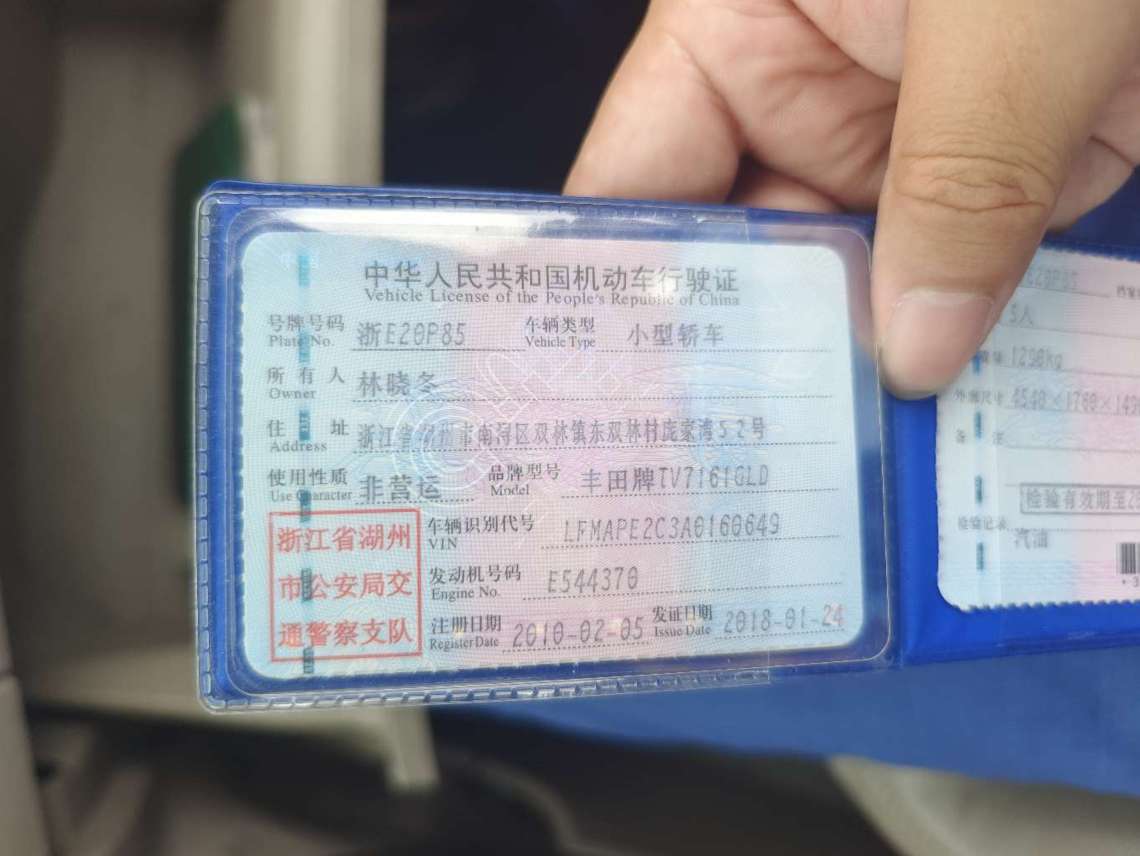 中华人民共和国机动车行驶证
Vehicle License of the People's Republic of China
号牌号码 浙E20P85 车辆类型 小型轿车
Plate No. Vehicle Type
所有人 林晓冬
Owner
住址 浙江省湖州市南浔区双林镇东双林村庞家湾52号
Address
使用性质 非营运 品牌型号 丰田牌TV7161GLD
Use Character Model
浙江省湖州
市公安局交
通警察支队
车辆识别代号 LFMAPE2C3A0160649
VIN
发动机号码 E544370
Engine No.
注册日期 2010-02-05 发证日期 2018-01-24
Register Date Issue Date
E20P85
5人
1298kg
外廓尺寸
备注
检验有效期至2
检验记录
汽油